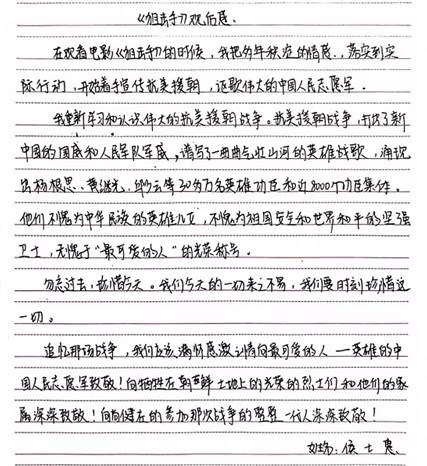 《狙击手》观后感.
在观看电影《狙击手》的时候，我把多年积症的情感，落实到实
际行动，开始着手宣传抗美援朝，讴歌伟大的中国人民志愿军。
我重新学习和认识伟大的抗美援朝战争。抗美援朝战争，打出了新
中国的国威和人民军队军威，谱写了一曲曲气壮山河的英雄战歌，涌现
出杨根思、黄继光、邱少云等30多万名英雄功臣和近6000个功臣集体。
他们不愧为中华民族的英雄儿女，不愧为祖国安全和世界和平的坚强
卫士，无愧于“最可爱的人”的光荣称号。
勿忘过去，珍惜今天。我们今天的一切来之不易，我们要时刻珍惜这
一切。
追忆那场战争，我们应该满怀感激之情向最可爱的人—英雄的中
国人民志愿军致敬！向牺牲在朝鲜土地上的光荣的烈士们和他们的家
属深深致敬！向尚健在的参加那次战争的整整一代人深深致敬！